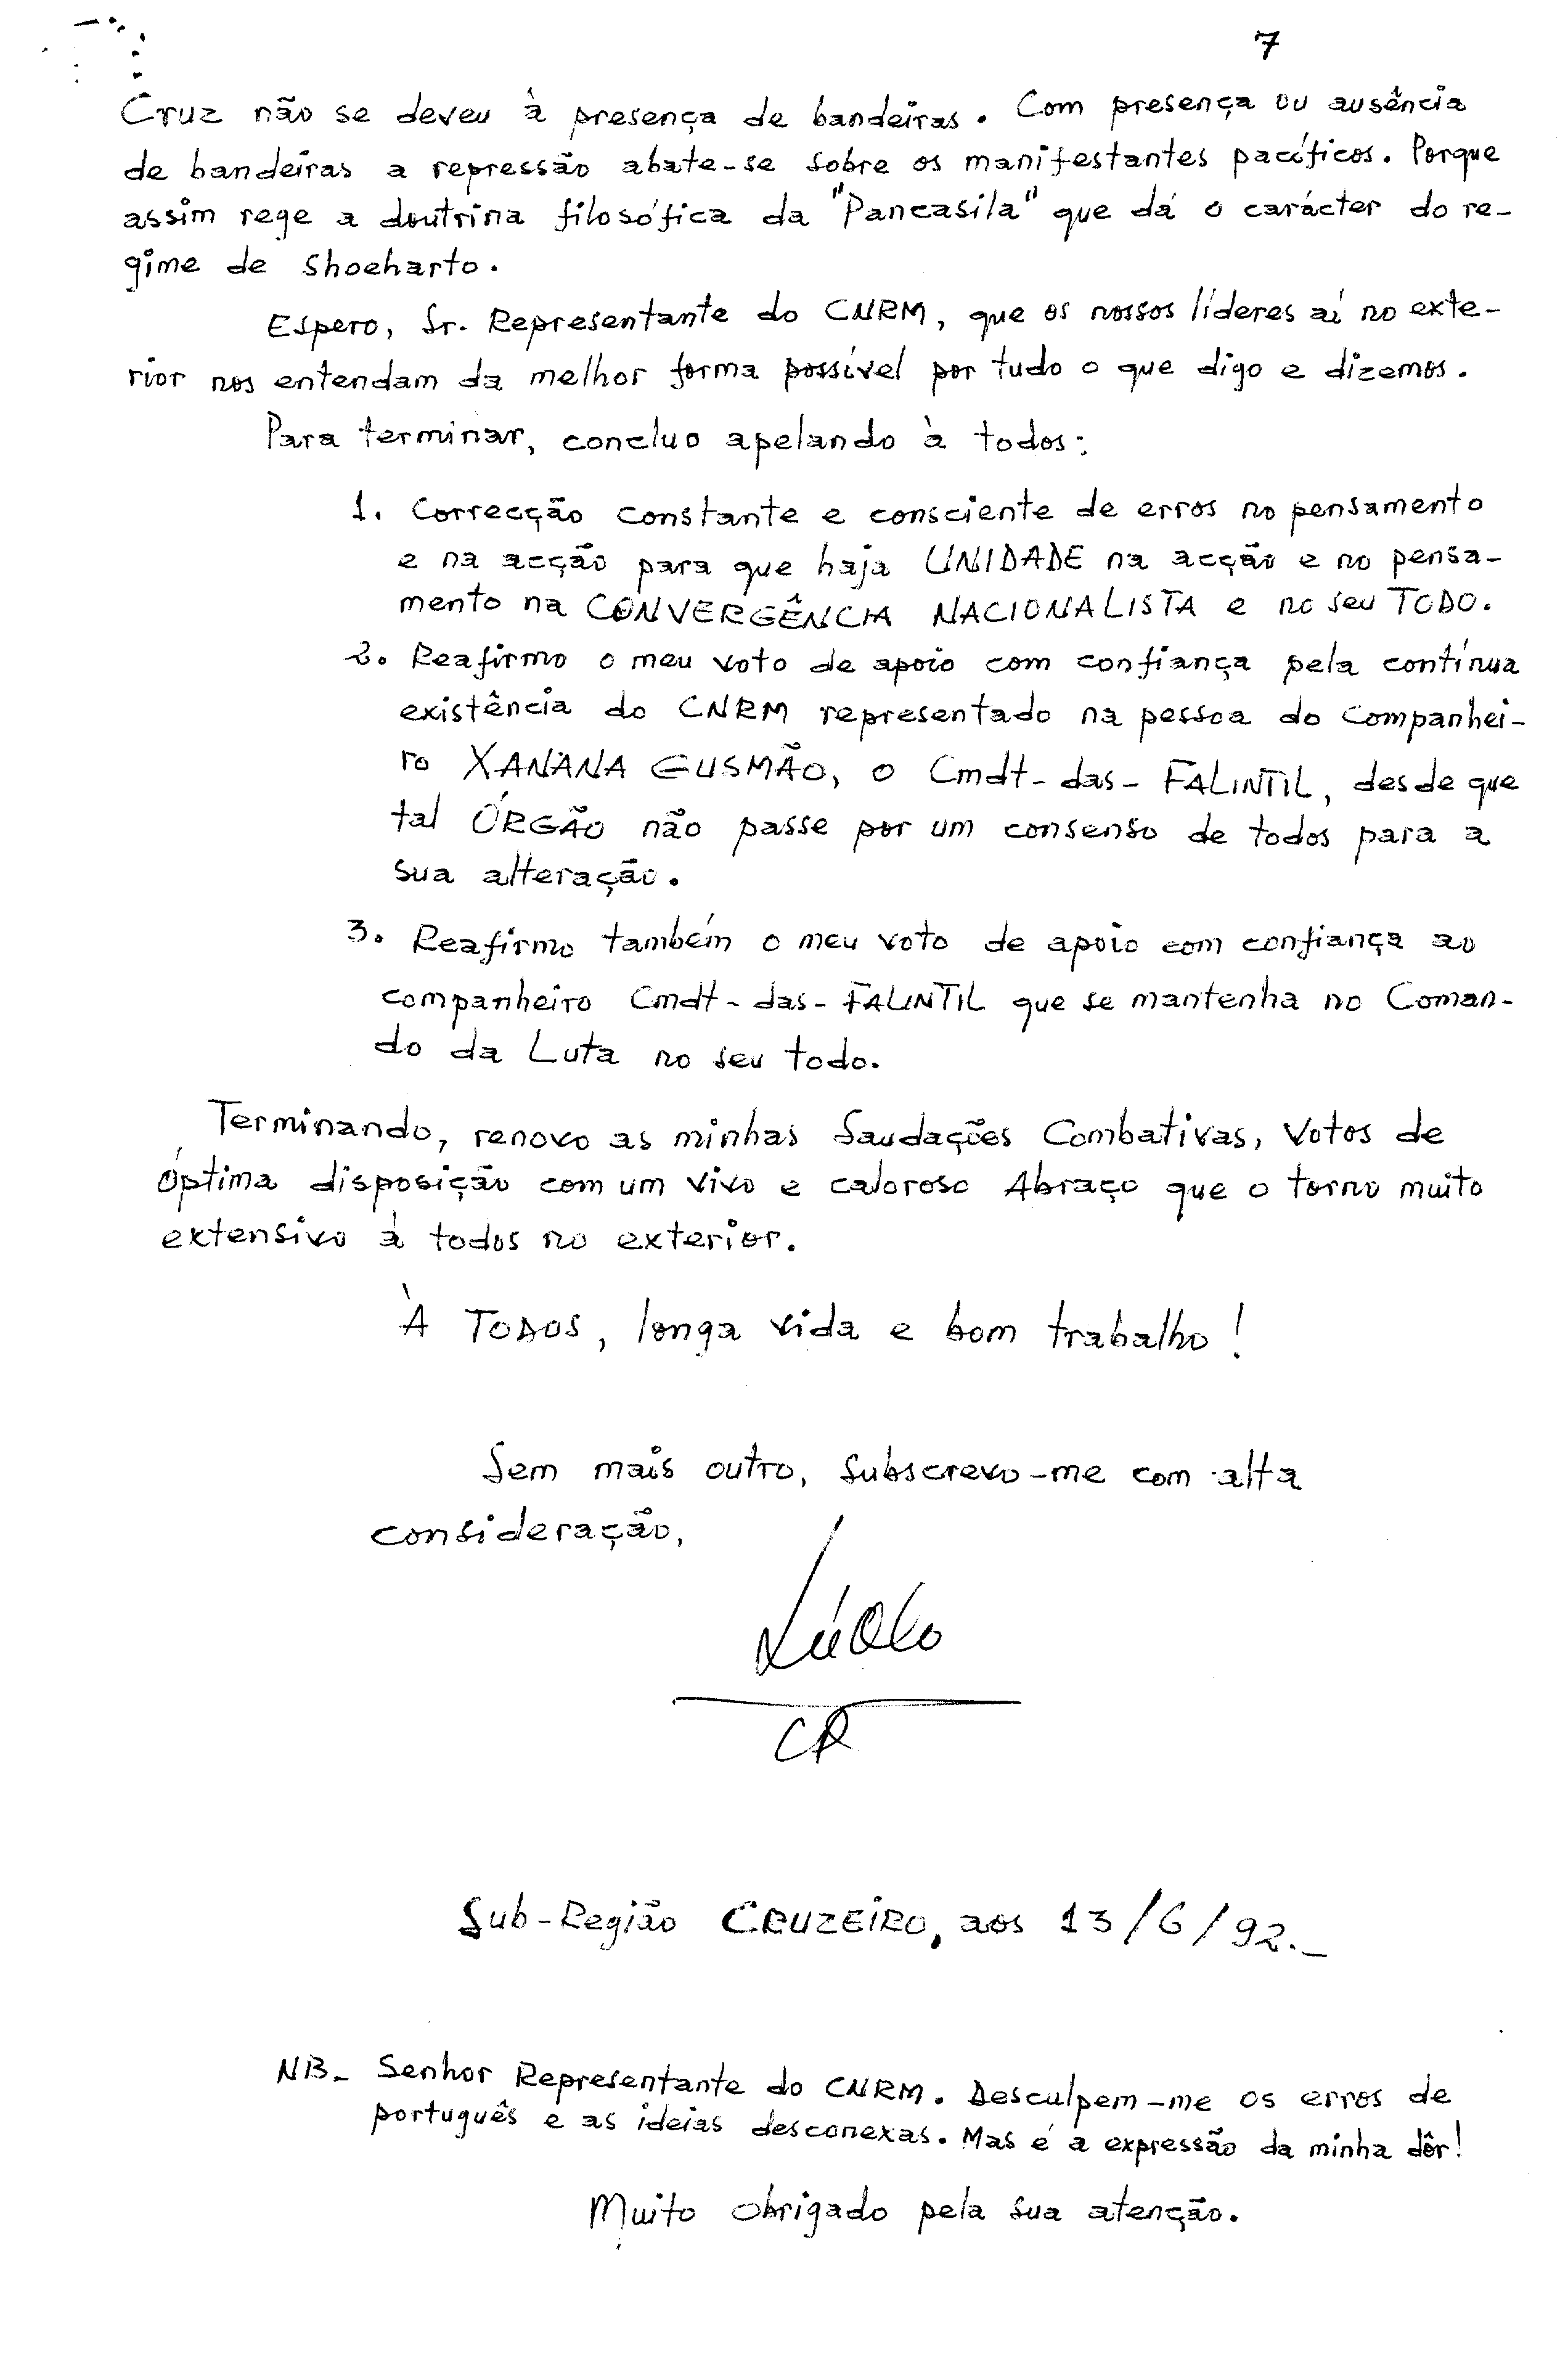 7
Cruz não se deveu à presença de bandeiras. Com presença ou ausência
de bandeiras a repressão abate-se sobre os manifestantes pacíficos. Porque
assim rege a doutrina filosófica da "Pancasila" que dá o carácter do re-
gime de Shoeharto.
Espero, Sr. Representante do CNRM, que os nossos líderes aí no exte-
rior nos entendam da melhor forma possível por tudo o que digo e dizemos.
Para terminar, concluo apelando à todos:
1. Correcção constante e consciente de erros no pensamento
e na acção para que haja UNIDADE na acção e no pensa-
mento na CONVERGÊNCIA NACIONALISTA e no seu TODO.
2. Reafirmo o meu voto de apoio com confiança pela contínua
existência do CNRM representado na pessoa do Companhei-
ro XANANA GUSMÃO, o Cmdt-das-FALINTIL, desde que
tal ÓRGÃO não passe por um consenso de todos para a
sua alteração.
3. Reafirmo também o meu voto de apoio com confiança ao
companheiro Cmdt-das-FALINTIL que se mantenha no Coman-
do da Luta no seu todo.
Terminando, renovo as minhas Saudações Combativas, Votos de
óptima disposição com um vivo e caloroso Abraço que o torno muito
extensivo à todos no exterior.
À TODOS, longa vida e bom trabalho!
Sem mais outro, Subscrevo-me com alta
consideração,
LúOlo
CR
Sub-Região CRUZEIRO, aos 13/6/92.-
NB- Senhor Representante do CNRM. Desculpem-me os erros de
português e as ideias desconexas. Mas é a expressão da minha dôr!
Muito obrigado pela sua atenção.